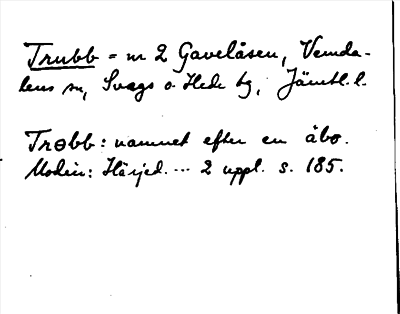 Trubb = n 2 Gaveläsen, Vemda-
lens sn, Svegs o Hede tg, Jämtl. l.
Trobb: namnet efter en åbo.
Modin: Härjed. ... 2 uppl. s. 185.